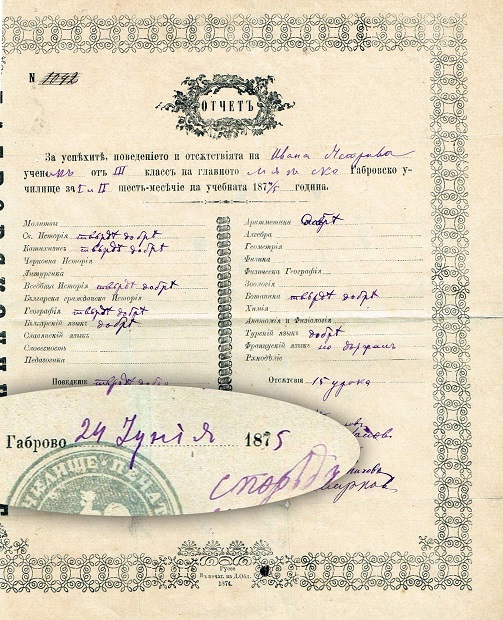 N 1092
ОТЧЕТЪ
За успѣхитѣ, поведението и отсѫтствията на Ивана
ученикъ отъ III классъ на главното мѫжско Габровско у-
чилище за I и II шесть-месѣчие на учебната 1874/5 година.
Молитвы
Св. История твърдѣ добрѣ
Катихизисъ твърдѣ добрѣ
Черковна История
Литургика
Всеобща История твърдѣ добрѣ
Българска гражданска История
География твърдѣ добрѣ
Българский языкъ добрѣ
Славянский языкъ
Словесность
Педагогика
Поведение твърдѣ добро
Аритметика добрѣ
Алгебра
Геометрия
Физика
Физическа География
Зоология
Ботаника твърдѣ добрѣ
Химия
Анатомия и Физиология
Турский языкъ добрѣ
Французский языкъ
Рѫкодѣлие
Отсѫтствия 15 урока
Габрово 24 Јунія 1875
УЧИЛИЩЕ · ПЕЧАТ
Руссе
Въ печат. на Д. Обл.
1874.